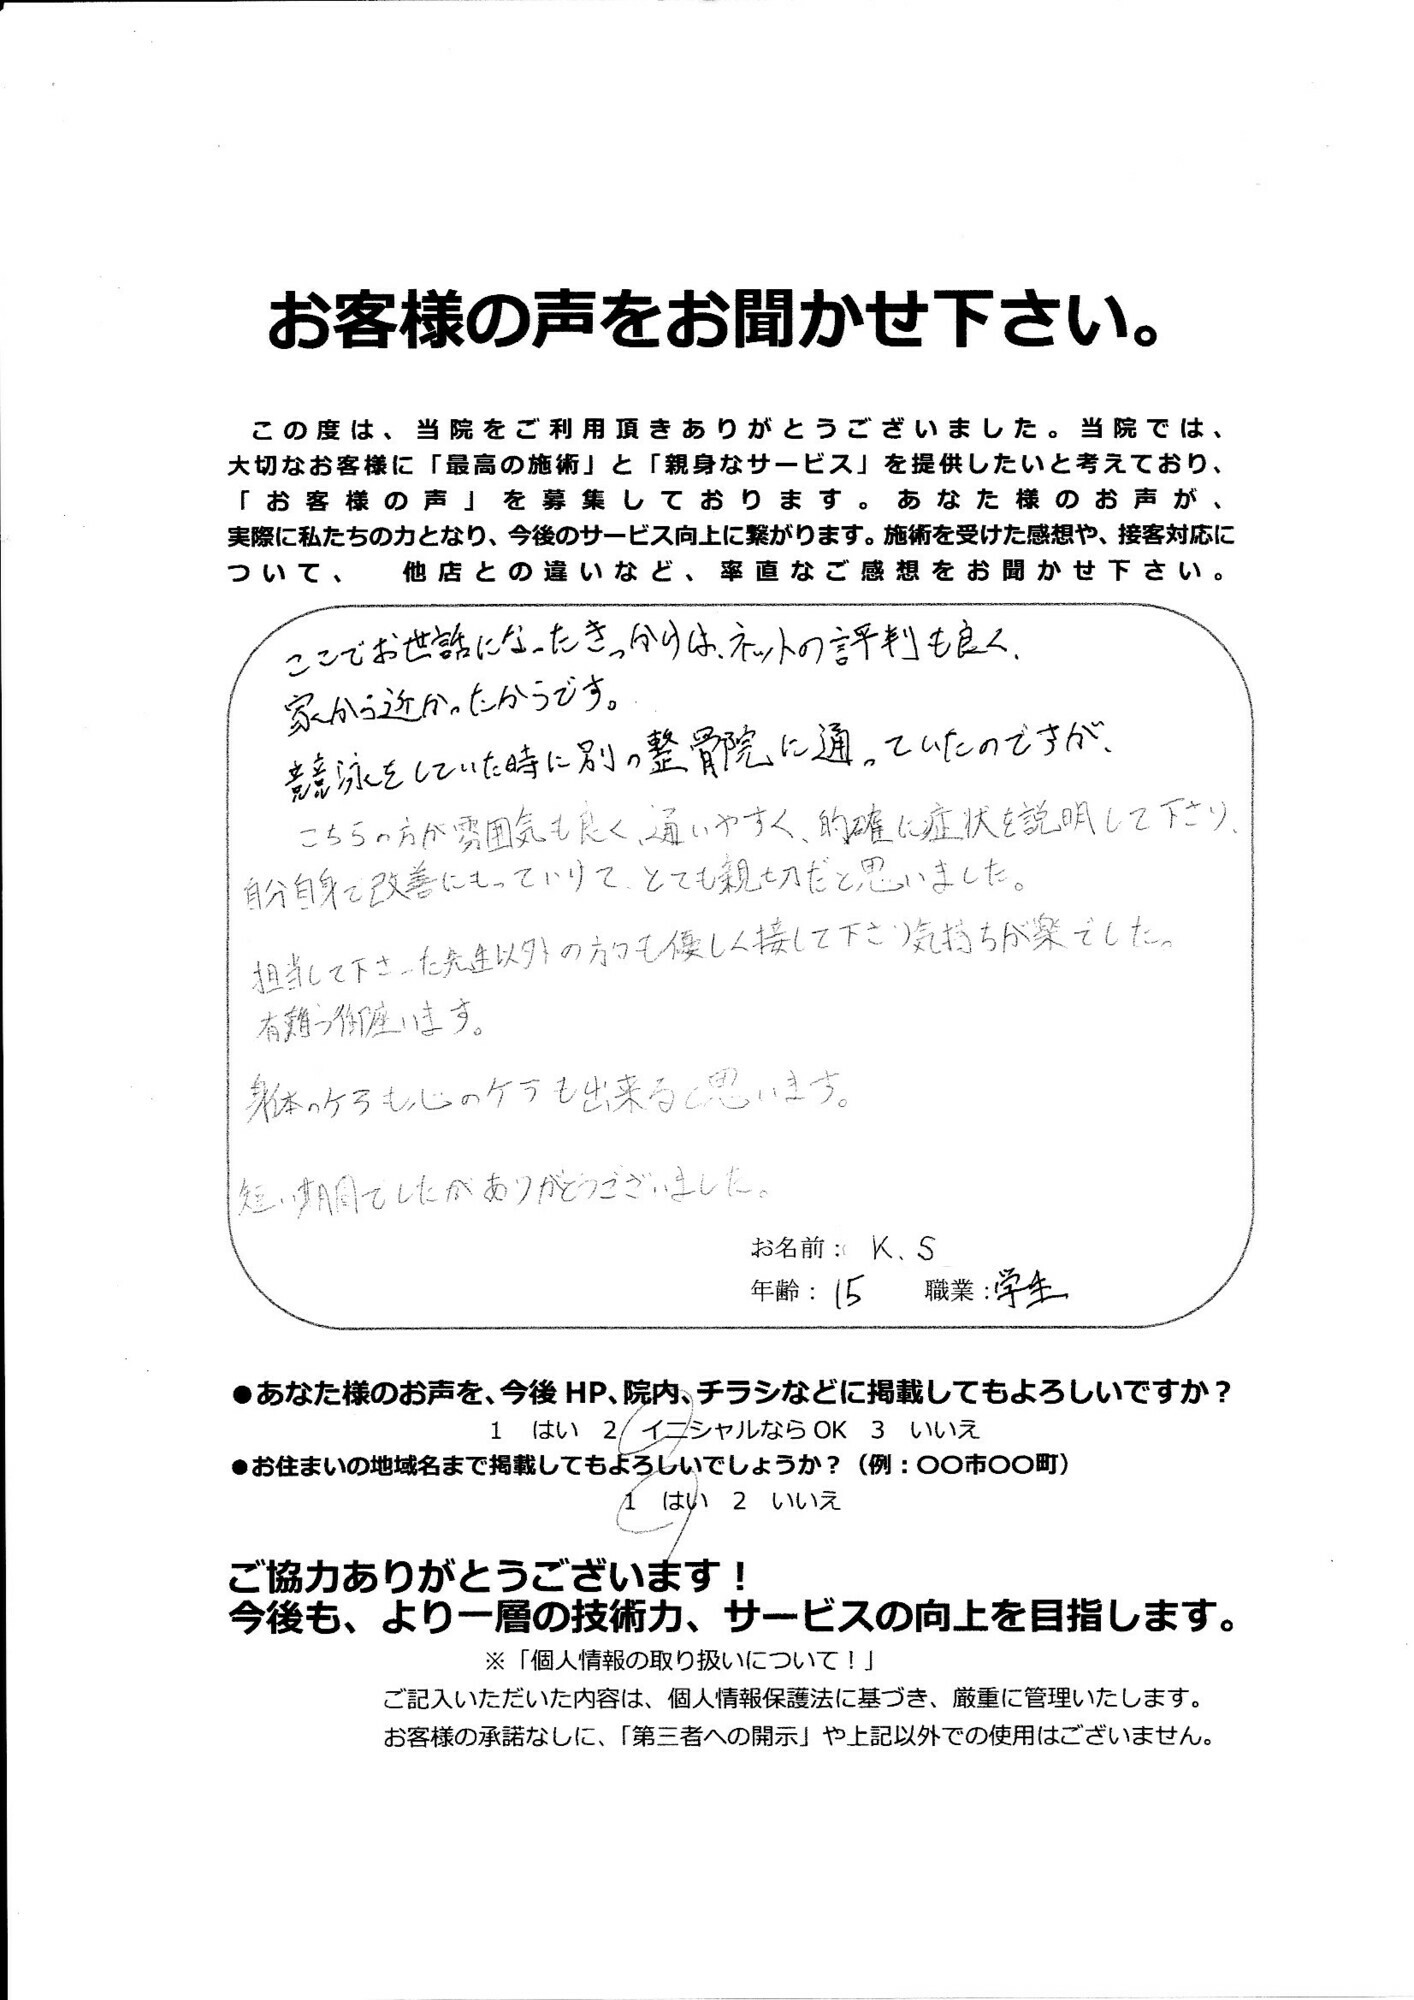 お客様の声をお聞かせ下さい。
この度は、当院をご利用頂きありがとうございました。当院では、
大切なお客様に「最高の施術」と「親身なサービス」を提供したいと考えており、
「お客様の声」を募集しております。あなた様のお声が、
実際に私たちの力となり、今後のサービス向上に繋がります。施術を受けた感想や、接客対応に
ついて、 他店との違いなど、率直なご感想をお聞かせ下さい。
ここでお世話になったきっかけは、ネットの評判も良く、
家から近かったからです。
競泳をしていた時に別の整骨院に通っていたのですが、
こちらの方が雰囲気も良く、通いやすく、的確に症状を説明して下さり、
自分自身で改善にもっていけて、とても親切だと思いました。
担当して下さった先生以外の方々も優しく接して下さり気持ちが楽でした。
有難う御座います。
身体のケアも心のケアも出来ると思います。
短い期間でしたがありがとうございました。
お名前： K.S
年齢： 15 職業：学生
●あなた様のお声を、今後 HP、院内、チラシなどに掲載してもよろしいですか？
1 はい 2 イニシャルなら OK 3 いいえ
●お住まいの地域名まで掲載してもよろしいでしょうか？（例：〇〇市〇〇町）
1 はい 2 いいえ
ご協力ありがとうございます！
今後も、より一層の技術力、サービスの向上を目指します。
※「個人情報の取り扱いについて！」
ご記入いただいた内容は、個人情報保護法に基づき、厳重に管理いたします。
お客様の承諾なしに、「第三者への開示」や上記以外での使用はございません。